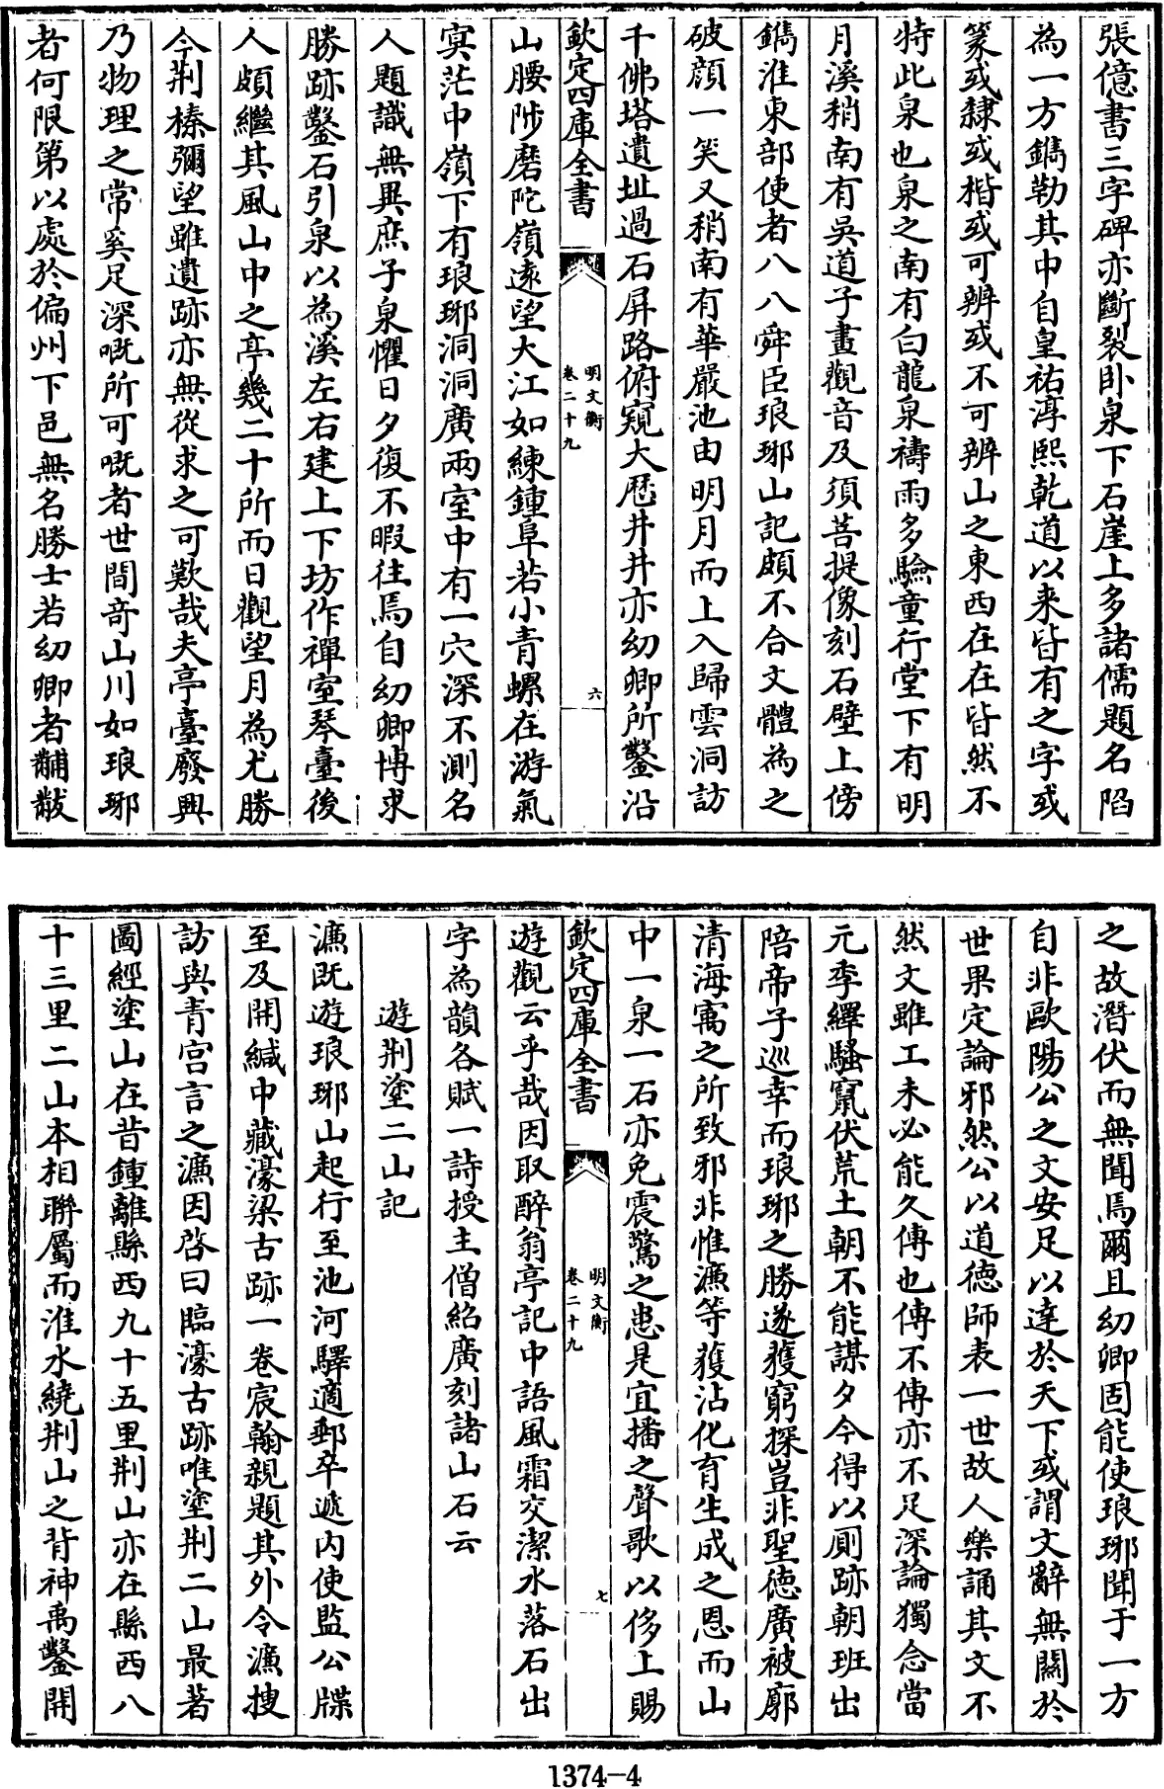 張億書三字碑亦斷裂卧泉下石崖上多諸儒題名陷
為一方鐫勒其中自皇祐淳熙乾道以来皆有之字或
篆或隸或楷或可辨或不可辨山之東西在在皆然不
特此泉也泉之南有白龍泉禱雨多驗童行堂下有明
月溪稍南有吳道子畫觀音及須菩提像刻石壁上傍
鐫淮東部使者八八舜臣琅琊山記頗不合文體為之
破顔一笑又稍南有華嚴池由明月而上入歸雲洞訪
千佛塔遺址過石屏路俯窺大厯井井亦幼卿所鑿沿
欽定四庫全書
明文衡
卷二十九
六
山腰陟磨陀嶺遠望大江如練鍾阜若小青螺在游氣
㝠茫中嶺下有琅琊洞洞廣兩室中有一穴深不測名
人題識無異庶子泉懼日夕復不暇往焉自幼卿博求
勝跡鑿石引泉以為溪左右建上下坊作禪室琴臺後
人頗繼其風山中之亭幾二十所而日觀望月為尤勝
今荆榛彌望雖遺跡亦無從求之可歎哉夫亭臺廢興
乃物理之常奚足深嘅所可嘅者世間奇山川如琅琊
者何限第以處於偏州下邑無名勝士若幼卿者黼黻
之故潛伏而無聞焉爾且幼卿固能使琅琊聞于一方
自非歐陽公之文安足以達於天下或謂文辭無關於
世果定論邪然公以道德師表一世故人樂誦其文不
然文雖工未必能久傳也傳不傳亦不足深論獨念當
元季繹騷竄伏荒土朝不能謀夕今得以厠跡朝班出
陪帝子巡幸而琅琊之勝遂獲窮探豈非聖德廣被廓
清海㝢之所致邪非惟濂等獲沾化育生成之恩而山
中一泉一石亦免震驚之患是宜播之聲歌以侈上賜
欽定四庫全書
明文衡
卷二十九
七
遊觀云乎哉因取醉翁亭記中語風霜交潔水落石出
字為韻各賦一詩授主僧紹廣刻諸山石云
遊荆塗二山記
濂既遊琅琊山起行至池河驛適郵卒遞内使監公牒
至及開緘中藏濠梁古跡一卷宸翰親題其外令濂搜
訪與青宫言之濂因啓曰臨濠古跡唯塗荆二山最著
圖經塗山在昔鍾離縣西九十五里荆山亦在縣西八
十三里二山本相聯屬而淮水繞荆山之背神禹鑿開
1374-4